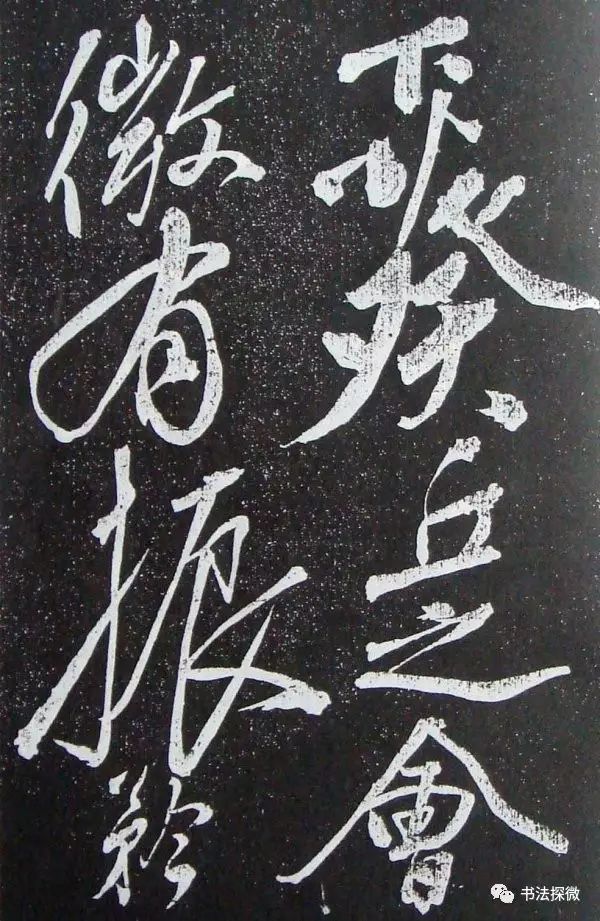 下葵丘之會
微有振矜
书法探微